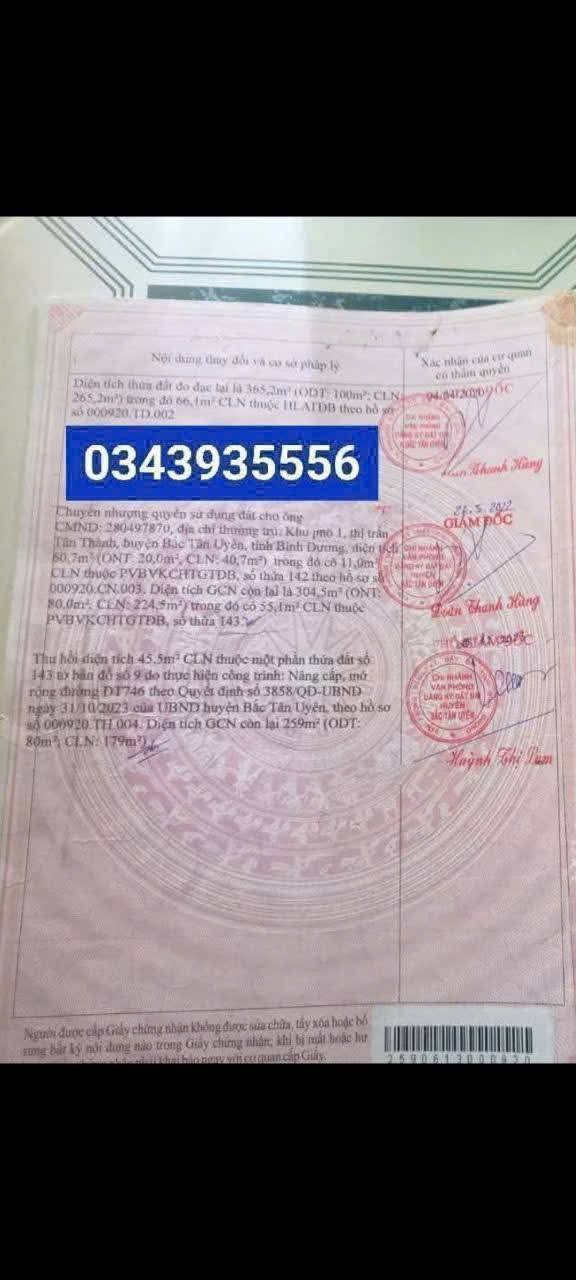 Nội dung thay đổi và cơ sở pháp lý
Xác nhận của cơ quan
có thẩm quyền
Diện tích thửa đất đo đạc lại là 365,2m² (ODT: 100m²; CLN:
265,2m²) trong đó 66,1m² CLN thuộc HLATĐB theo hồ sơ
số 000920.TD.002
04/04/2020
CHI NHÁNH
VĂN PHÒNG
ĐĂNG KÝ ĐẤT ĐAI
HUYỆN
BẮC TÂN UYÊN
Thanh Hùng
0343935556
Chuyển nhượng quyền sử dụng đất cho ông
CMND: 280497870, địa chỉ thường trú: Khu phố 1, thị trấn
Tân Thành, huyện Bắc Tân Uyên, tỉnh Bình Dương, diện tích
60,7m² (ONT: 20,0m², CLN: 40,7m²) trong đó có 11,0m²
CLN thuộc PVBVKCHTGTĐB, số thửa 142 theo hồ sơ số
000920.CN.003. Diện tích GCN còn lại là 304,5m² (ONT:
80,0m², CLN: 224,5m²) trong đó có 55,1m² CLN thuộc
PVBVKCHTGTĐB, số thửa 143.
26.5.2022
GIÁM ĐỐC
CHI NHÁNH
VĂN PHÒNG
ĐĂNG KÝ ĐẤT ĐAI
HUYỆN
BẮC TÂN UYÊN
Đoàn Thanh Hùng
Thu hồi diện tích 45,5m² CLN thuộc một phần thửa đất số
143 tờ bản đồ số 9 do thực hiện công trình: Nâng cấp, mở
rộng đường ĐT746 theo Quyết định số 3858/QĐ-UBND
ngày 31/10/2023 của UBND huyện Bắc Tân Uyên, theo hồ sơ
số 000920.TH.004. Diện tích GCN còn lại 259m² (ODT:
80m²; CLN: 179m²)
CHI NHÁNH
VĂN PHÒNG
ĐĂNG KÝ ĐẤT ĐAI
HUYỆN
BẮC TÂN UYÊN
Huỳnh Thị Lam
Người được cấp Giấy chứng nhận không được sửa chữa, tẩy xóa hoặc bổ
sung bất kỳ nội dung nào trong Giấy chứng nhận; khi bị mất hoặc hư
phải khai báo ngay với cơ quan cấp Giấy.
2590613000920